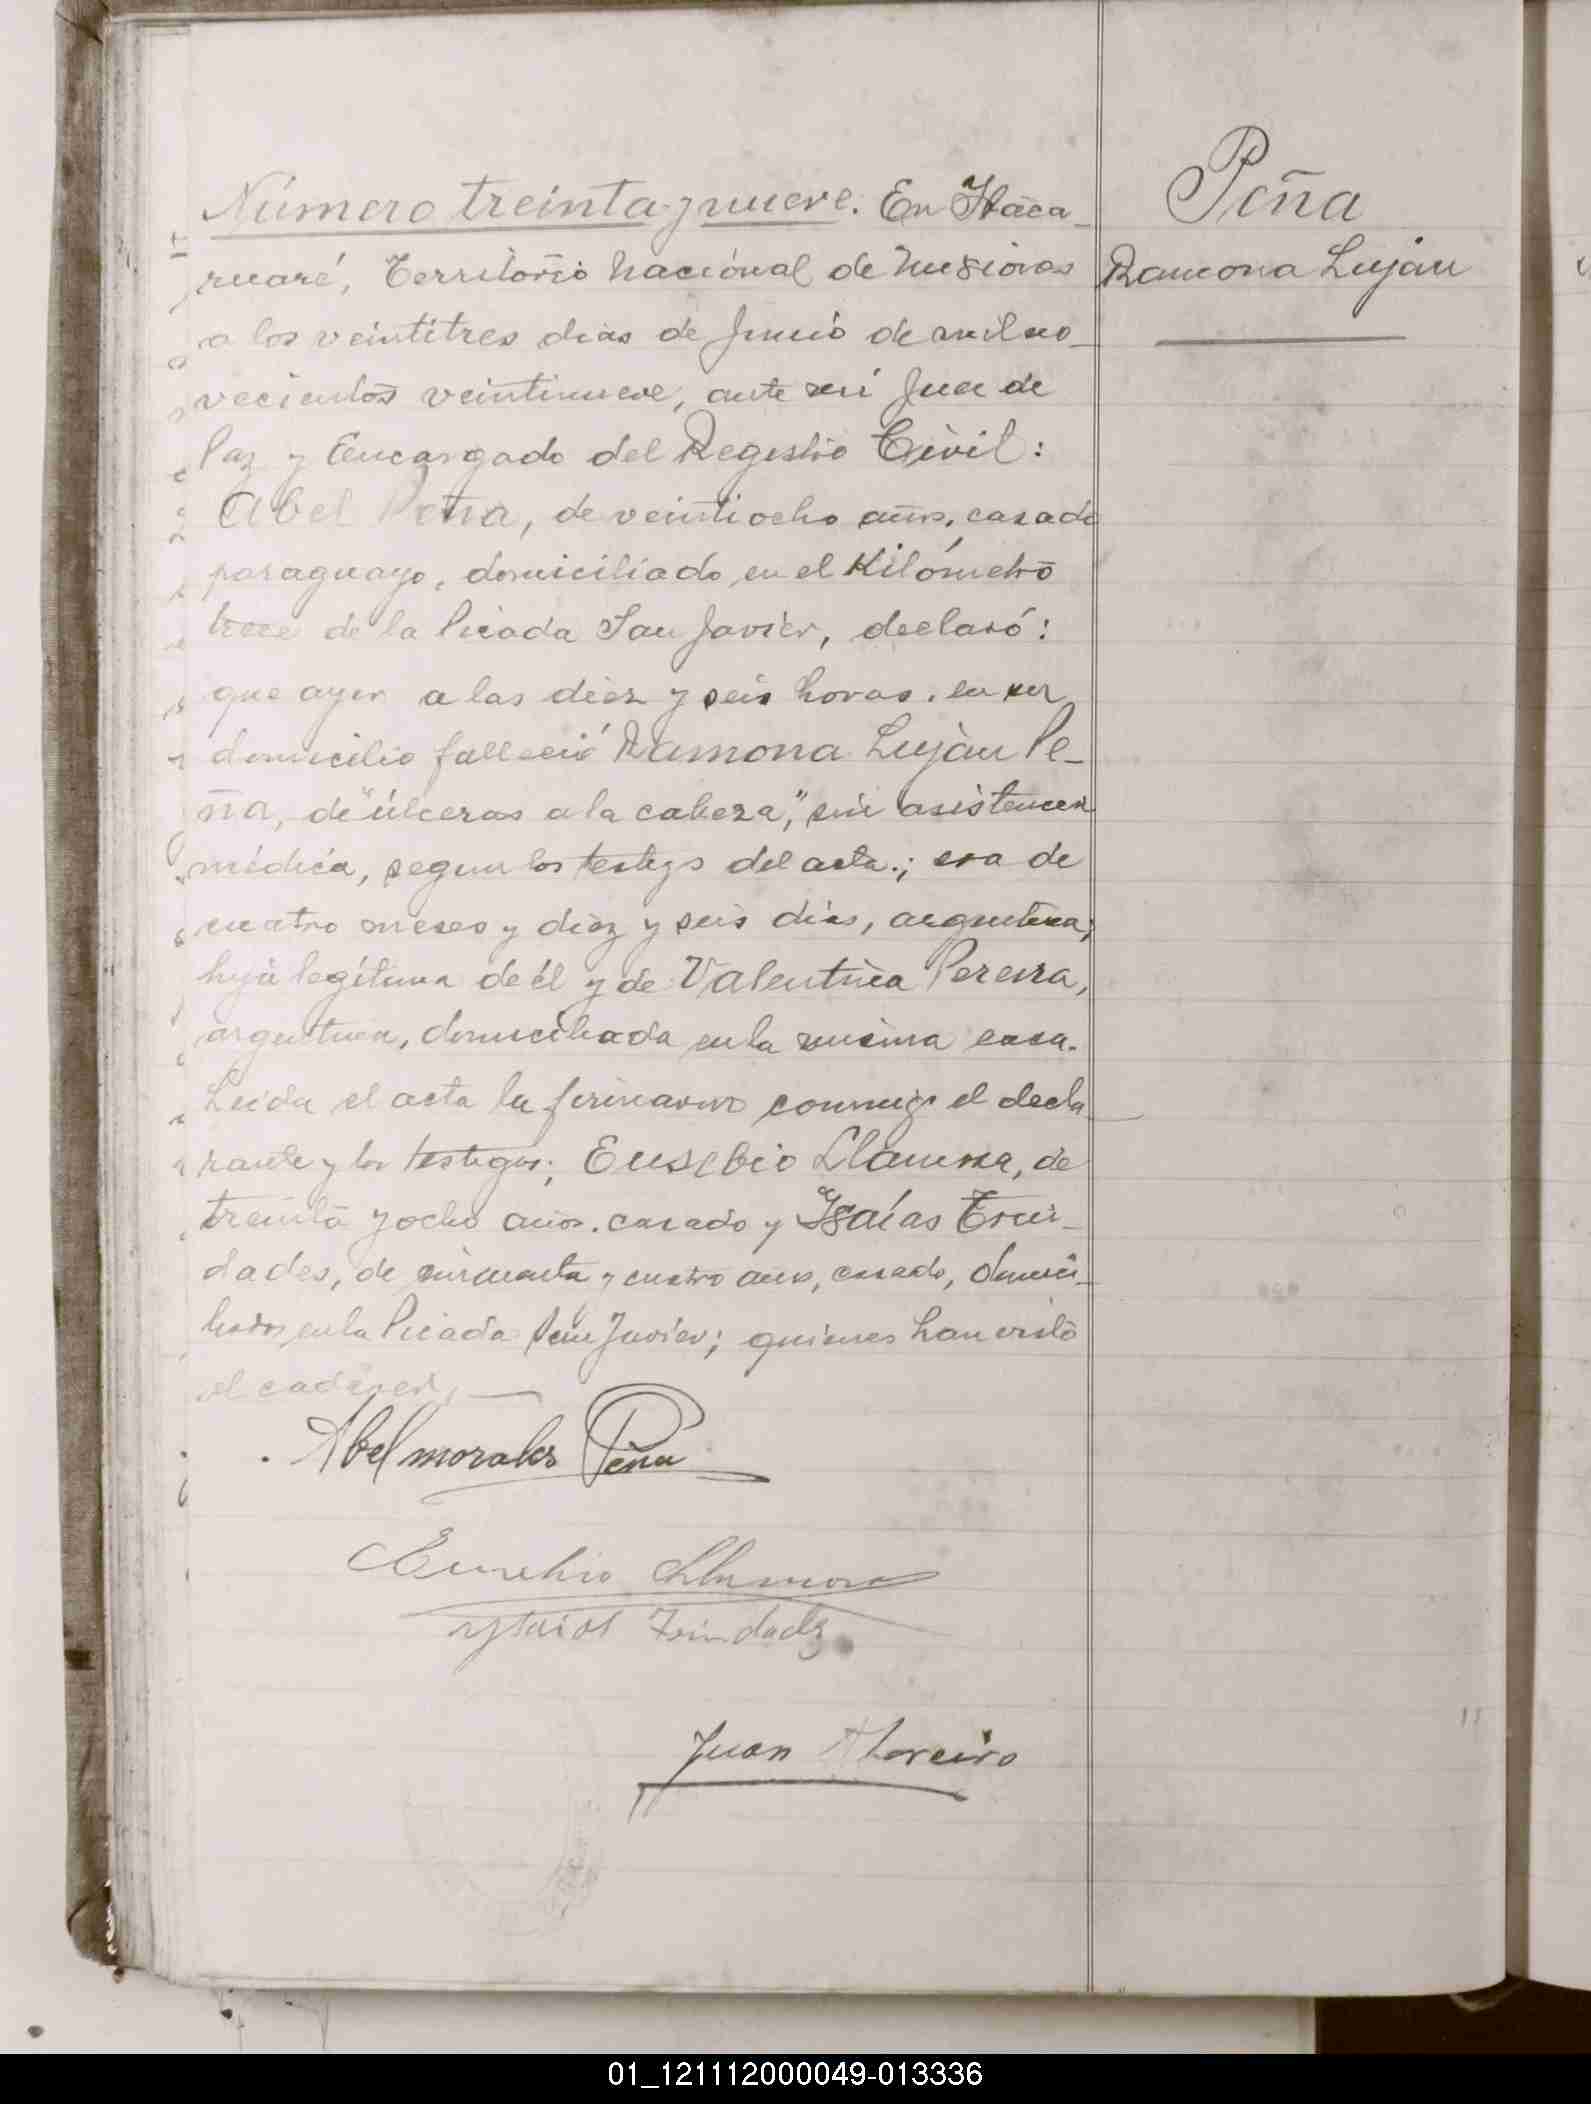 Número treinta y nueve. En Itaca-
ruaré, Territorio Nacional de Misiones
a los veintitres dias de Junio de mil no-
vecientos veintinueve, ante mi Juez de
Paz y Encargado del Registro Civil:
Abel Peña, de veintiocho años, casado
paraguayo, domiciliado en el Kilómetro
trece de la Picada San Javier, declaró:
que ayer a las diez y seis horas, en su
domicilio falleció Ramona Luján Pe-
ña, de "úlceras a la cabeza," sin asistencia
médica, segun los testigos del acta.; era de
cuatro meses y diez y seis dias, argentina;
hija legítima de él y de Valentina Pereira,
argentina, domiciliada en la misma casa.
Leida el acta la firmaron conmigo el decla-
rante y los testigos; Eusebio Llamosa, de
treinta y ocho años, casado y Isaías Trin-
dades, de cincuenta y cuatro años, casado, domici-
liados en la Picada San Javier; quienes han visto
el cadaver,
Peña
Ramona Luján
Abel morales Peña
Eusebio Llamosa
Trindades
Juan Moreiro
01_121112000049-013336